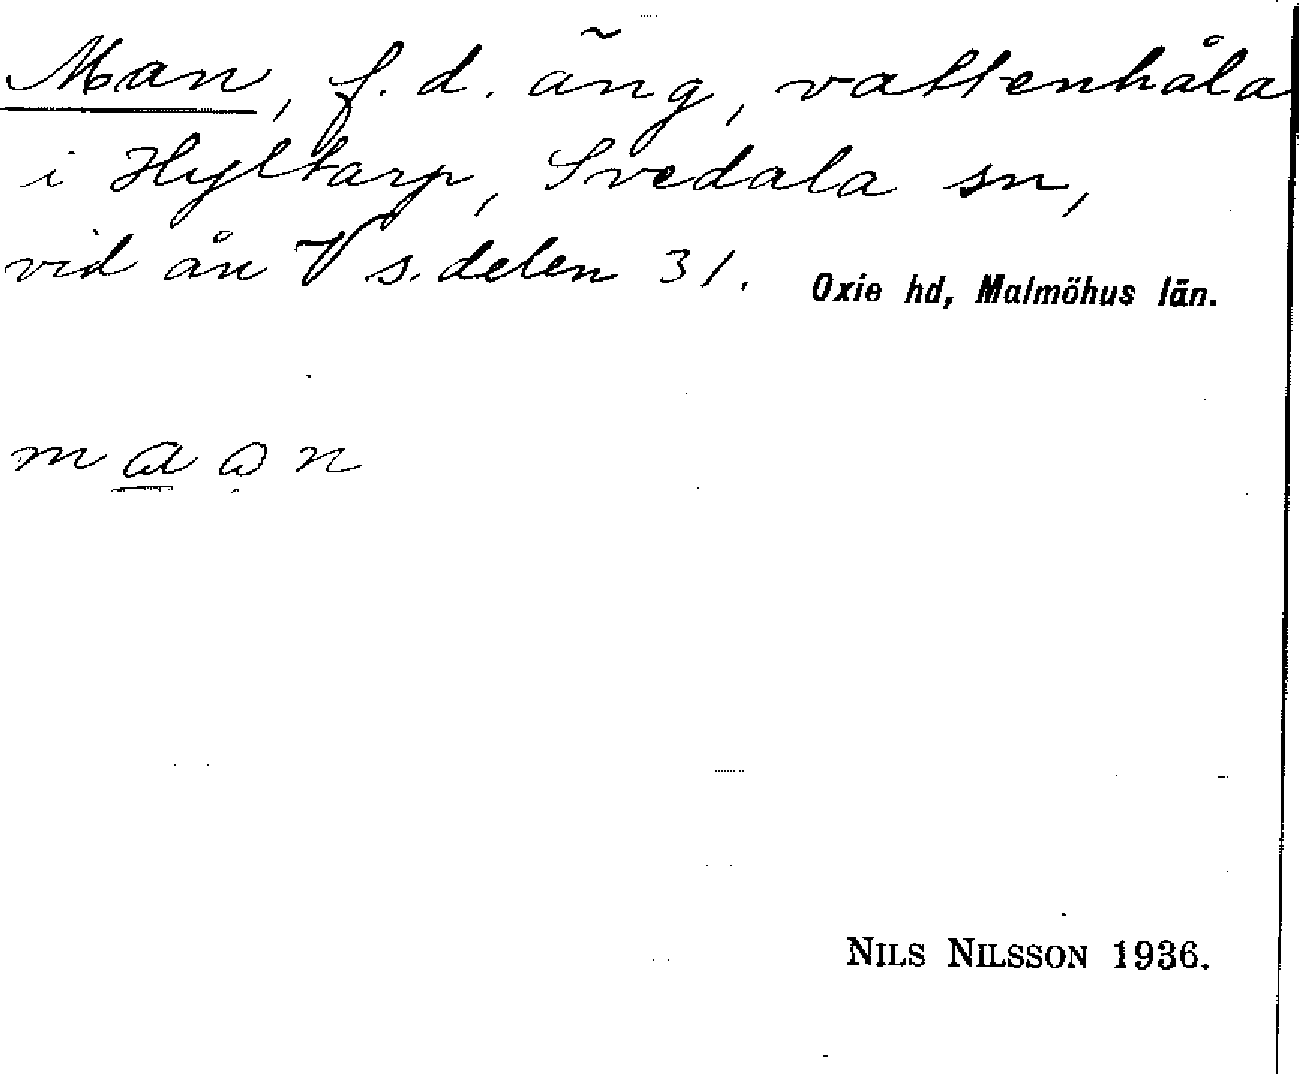 Man, f. d. äng, vattenhåla
i Hyltarp, Svedala sn,
vid ån V s. delen 31.
Oxie hd, Malmöhus län.
m a a n
NILS NILSSON 1936.